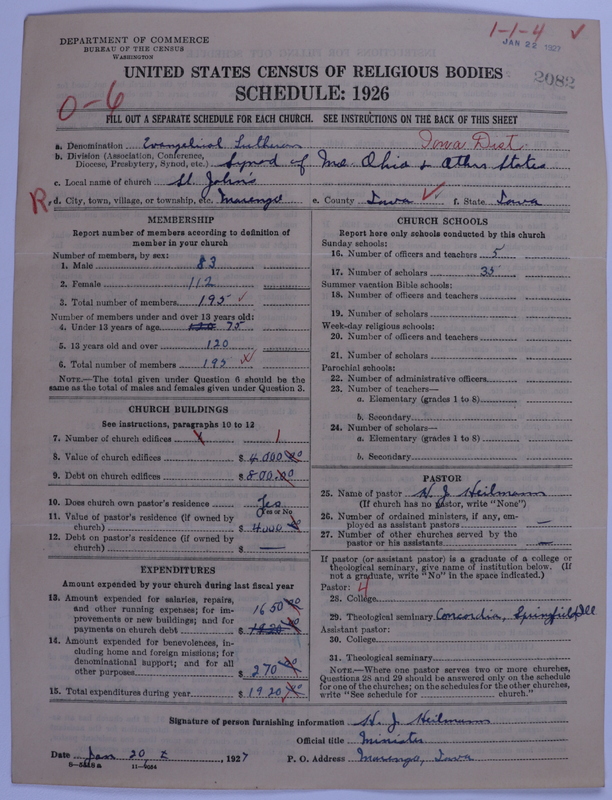 DEPARTMENT OF COMMERCE
BUREAU OF THE CENSUS
WASHINGTON
1-1-4 ✓
JAN 22 1927
UNITED STATES CENSUS OF RELIGIOUS BODIES
2082
SCHEDULE: 1926
0-6
FILL OUT A SEPARATE SCHEDULE FOR EACH CHURCH. SEE INSTRUCTIONS ON THE BACK OF THIS SHEET
a. Denomination Evangelical Lutheran Iowa Dist.
b. Division (Association, Conference, Diocese, Presbytery, Synod, etc.) Synod of Mo. Ohio & Other States
c. Local name of church St. John's
R. d. City, town, village, or township, etc. Marengo e. County Iowa ✓ f. State Iowa
MEMBERSHIP
Report number of members according to definition of
member in your church
Number of members, by sex:
1. Male 83
2. Female 112
3. Total number of members 195 ✓
Number of members under and over 13 years old:
4. Under 13 years of age 120 75
5. 13 years old and over 120
6. Total number of members 195 ✓
NOTE.—The total given under Question 6 should be the
same as the total of males and females given under Question 3.
CHURCH BUILDINGS
See instructions, paragraphs 10 to 12
7. Number of church edifices 1
8. Value of church edifices $ 6,000.00
9. Debt on church edifices $ 800.00
10. Does church own pastor's residence Yes
Yes or No
11. Value of pastor's residence (if owned by
church) $ 4000
12. Debt on pastor's residence (if owned by
church) $ —
EXPENDITURES
Amount expended by your church during last fiscal year
13. Amount expended for salaries, repairs,
and other running expenses; for im-
provements or new buildings; and for
payments on church debt 1650.00
$ 1920.00
14. Amount expended for benevolences, in-
cluding home and foreign missions; for
denominational support; and for all
other purposes $ 270.00
15. Total expenditures during year $ 1920.00
CHURCH SCHOOLS
Report here only schools conducted by this church
Sunday schools:
16. Number of officers and teachers 5
17. Number of scholars 35
Summer vacation Bible schools:
18. Number of officers and teachers
19. Number of scholars
Week-day religious schools:
20. Number of officers and teachers
21. Number of scholars
Parochial schools:
22. Number of administrative officers
23. Number of teachers—
a. Elementary (grades 1 to 8)
b. Secondary
24. Number of scholars—
a. Elementary (grades 1 to 8)
b. Secondary
PASTOR
25. Name of pastor H. J. Heilmann
(If church has no pastor, write "None")
26. Number of ordained ministers, if any, em-
ployed as assistant pastors —
27. Number of other churches served by the
pastor or his assistants —
If pastor (or assistant pastor) is a graduate of a college or
theological seminary, give name of institution below. (If
not a graduate, write "No" in the space indicated.)
Pastor: 4
28. College
29. Theological seminary Concordia, Springfield Ill
Assistant pastor:
30. College
31. Theological seminary
NOTE.—Where one pastor serves two or more churches,
Questions 28 and 29 should be answered only on the schedule
for one of the churches; on the schedules for the other churches,
write "See schedule for church."
Signature of person furnishing information H. J. Heilmann
Official title Minister
Date Jan 20, 1927 P. O. Address Marengo, Iowa
11-9084